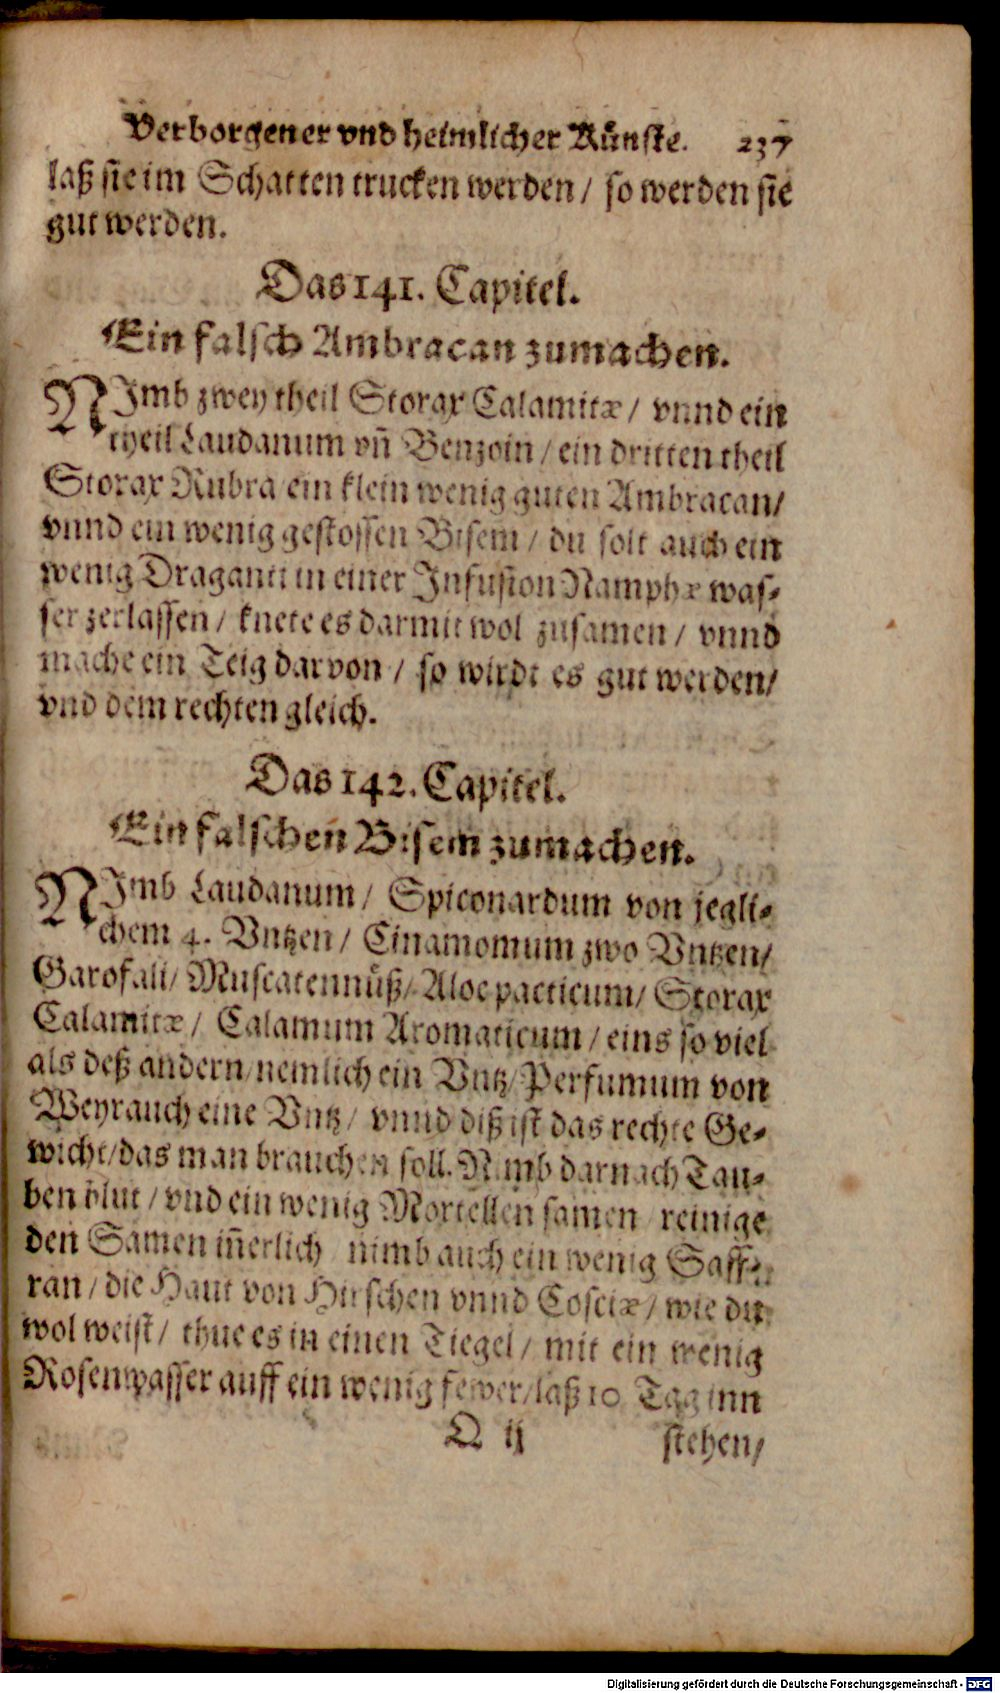 Verborgener vnd heimlicher Künste. 237
laß sie im Schatten trucken werden / so werden sie
gut werden.
Das 141. Capitel.
Ein falsch Ambracan zumachen.
NImb zwey theil Storax Calamitæ / vnnd ein
theil Laudanum vñ Benzoin / ein dritten theil
Storax Rubra / ein klein wenig guten Ambracan /
vnnd ein wenig gestossen Bisem / du solt auch ein
wenig Draganti in einer Infusion Namphæ was-
ser zerlassen / knete es darmit wol zusamen / vnnd
mache ein Teig darvon / so wirdt es gut werden /
vnd dem rechten gleich.
Das 142. Capitel.
Ein falschen Bisem zumachen.
NImb Laudanum / Spiconardum von jegli-
chem 4. Vntzen / Cinamomum zwo Vntzen /
Garofali / Muscatennüß / Aloe pacticum / Storax
Calamitæ / Calamum Aromaticum / eins so viel
als deß andern / nemlich ein Vntz / Perfumum von
Weyrauch eine Vntz / vnnd diß ist das rechte Ge-
wicht / das man brauchen soll. Nimb darnach Tau-
ben blut / vnd ein wenig Mortellen samen / reinige
den Samen iñerlich / nimb auch ein wenig Saff-
ran / die Haut von Hirschen vnnd Cosciæ / wie du
wol weist / thue es in einen Tiegel / mit ein wenig
Rosenwasser auff ein wenig fewer / laß 10 Tag inn
Q ij stehen /
Digitalisierung gefördert durch die Deutsche Forschungsgemeinschaft - DFG